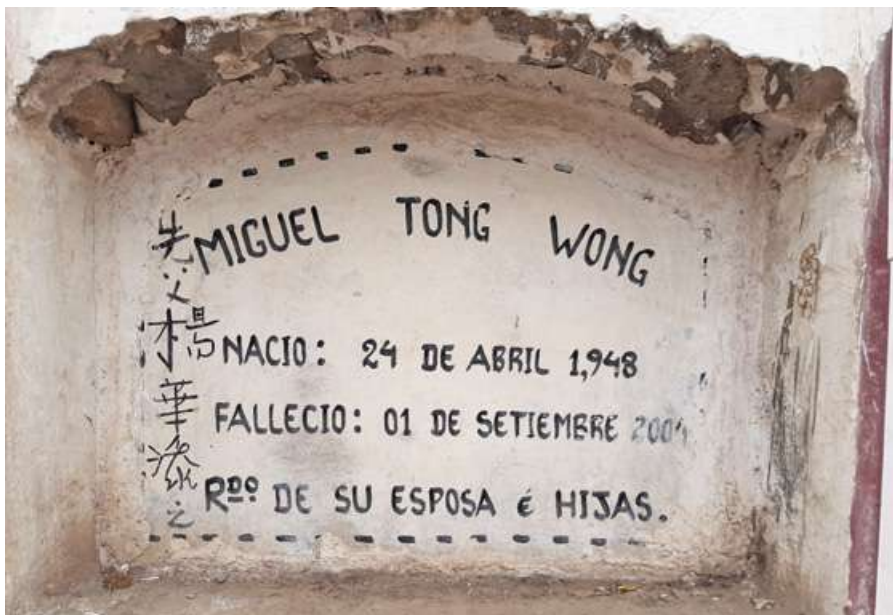 MIGUEL TONG WONG
NACIO: 24 DE ABRIL 1,948
FALLECIO: 01 DE SETIEMBRE
RDO. DE SU ESPOSA é HIJAS.
先父楊華之